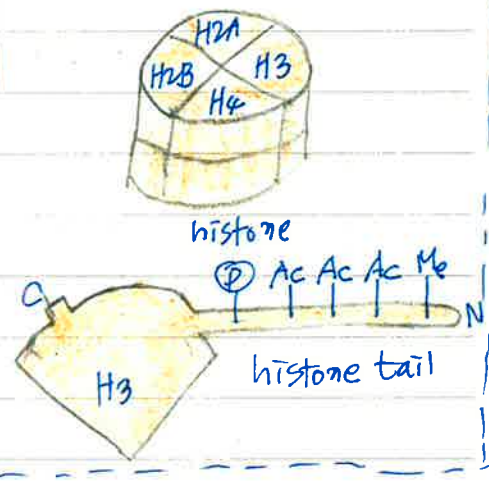 H2A
H2B H3
H4
histone
P Ac Ac Ac Me
C N
histone tail
H3